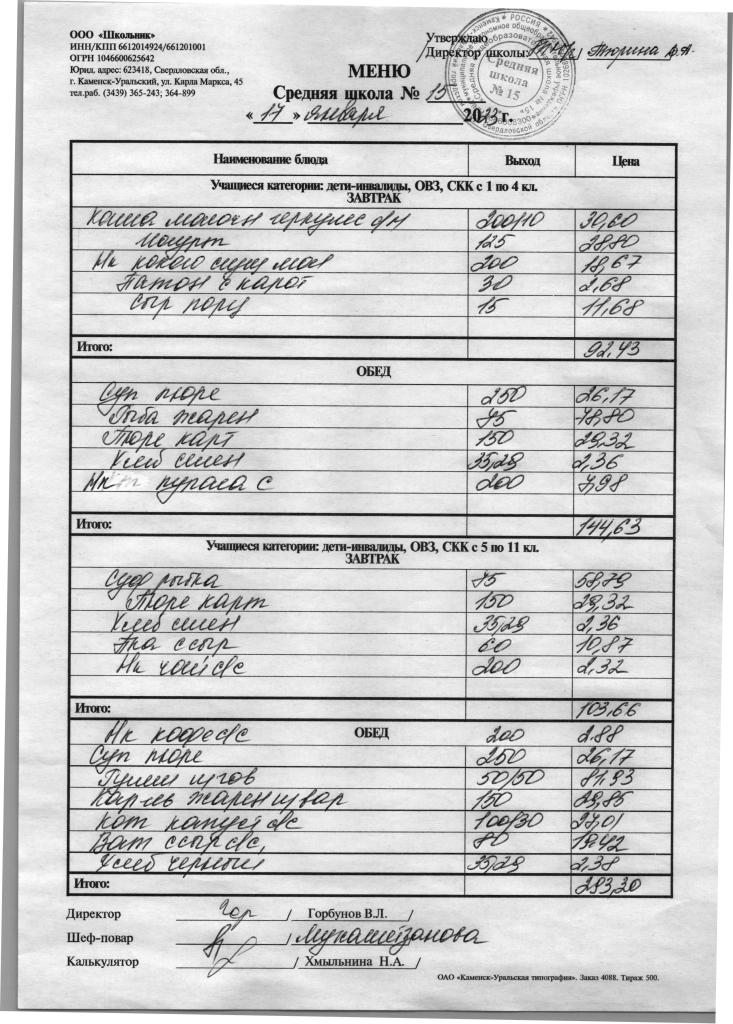 ООО «Школьник»
ИНН/КПП 6612014924/661201001
ОГРН 1046600625642
Юрид. адрес: 623418, Свердловская обл.,
г. Каменск-Уральский, ул. Карла Маркса, 45
тел.раб. (3439) 365-243; 364-899
Утверждаю
Директор школы
Средняя
школа
№ 15
МЕНЮ
Средняя школа № 15
« 17 » января 2023 г.
Наименование блюда Выход Цена
Учащиеся категории: дети-инвалиды, ОВЗ, СКК с 1 по 4 кл.
ЗАВТРАК
Каша молочн геркулес с/м 200/10 30,60
Йогурт 125 28,80
Нк какао сгущ мол 200 18,67
Батон с карот 30 2,68
Сыр порц 15 11,68
Итого: 92,43
ОБЕД
Суп пюре 250 26,17
Рыба жарен 75 78,80
Пюре карт 150 29,32
Хлеб 35/29 2,36
200 7,98
Итого: 144,63
Учащиеся категории: дети-инвалиды, ОВЗ, СКК с 5 по 11 кл.
ЗАВТРАК
75 58,79
Пюре карт 150 29,32
Хлеб 35/29 2,36
60 10,87
Нк чай с/с 200 2,32
Итого: 103,66
Нк кофе с/с ОБЕД 200 2.88
Суп пюре 250 26,17
50/50 81,93
жарен 150 29,85
Кот капуст с/с 100/30 27,01
Ват с сыр с/с, 80
Хлеб черный 35/29 2,38
Итого: 293,20
Директор / Горбунов В.Л. /
Шеф-повар /
Калькулятор / Хмыльнина Н.А. /
ОАО «Каменск-Уральская типография». Заказ 4088. Тираж 500.